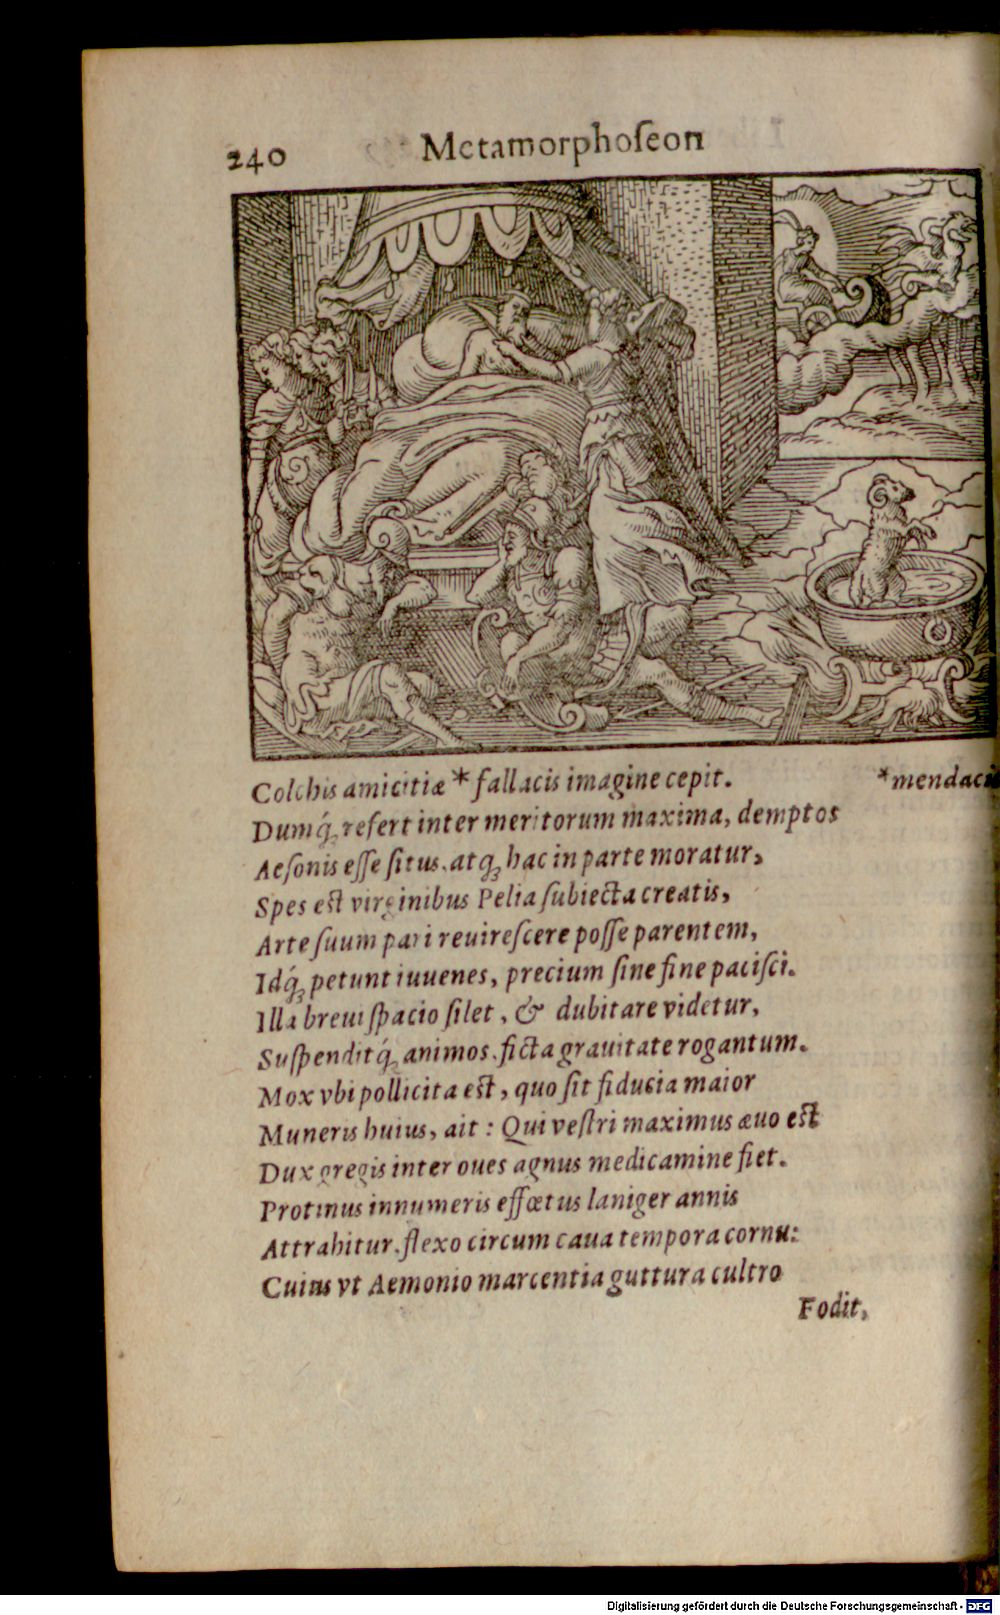 240 Metamorphoſeon
Colchis amicitiæ * fallacis imagine cepit. *mendacis
Dumq́ꝫ refert inter meritorum maxima, demptos
Aeſonis eſſe ſitus, atqꝫ hac in parte moratur,
Spes eſt virginibus Pelia ſubiecta creatis,
Arte ſuum pari reuireſcere poſſe parentem,
Idq́ꝫ petunt iuuenes, precium ſine fine paciſci.
Illa breui ſpacio ſilet, & dubitare videtur,
Suſpenditq́ꝫ animos ficta grauitate rogantum.
Mox vbi pollicita eſt, quo ſit fiducia maior
Muneris huius, ait: Qui veſtri maximus æuo eſt
Dux gregis inter oues agnus medicamine fiet.
Protinus innumeris effœtus laniger annis
Attrahitur, flexo circum caua tempora cornu:
Cuius vt Aemonio marcentia guttura cultro
Fodit,
Digitalisierung gefördert durch die Deutsche Forschungsgemeinschaft - DFG